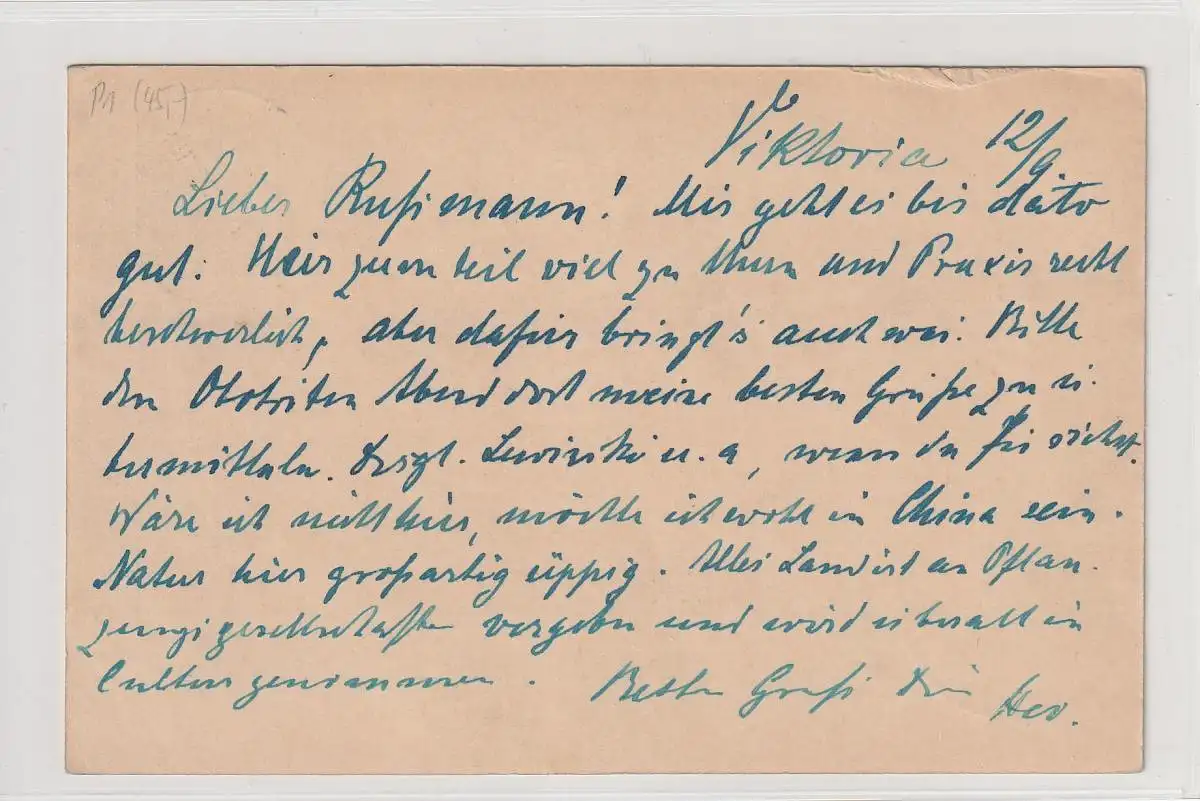 P1 (45,-)
Viktoria 12/9
Lieber Rußmann! Mir geht es bis dato
gut. Hier zum teil viel zu thun und Praxis recht
beschwerlich, aber dafür bringt's auch was. Bitte
den Obotriten Abend dort meine besten Grüße zu ü-
bermitteln. Desgl. Lewinski u. a, wenn du sie siehst.
Wäre ich nicht hier, möchte ich wohl in China sein.
Natur hier großartig üppig. Alles Land ist an Pflan-
zungsgesellschaften vergeben und wird überall in
Cultur genommen. Besten Gruß Dein